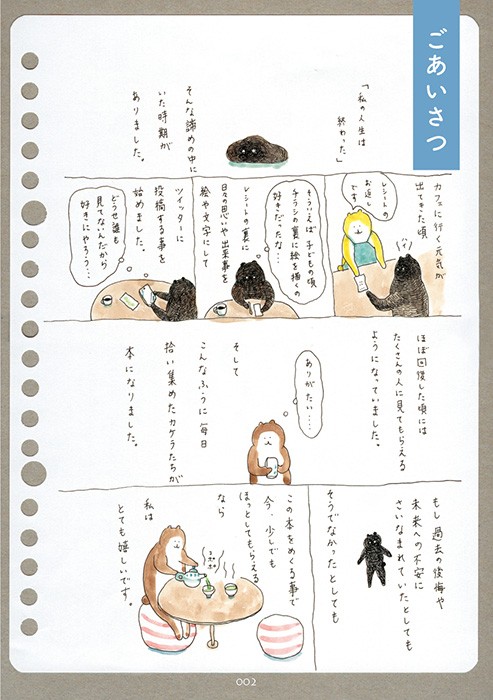 ごあいさつ
「私の人生は
終わった」
そんな諦めの中に
いた時期が
ありました。
カフェに行く元気が
出てきた頃
レシートの
お返し
です
そういえば子どもの頃
チラシの裏に絵を描くの
好きだったな…
レシートの裏に
日々の思いや出来事を
絵や文字にして
ツイッターに
投稿する事を
始めました。
どうせ誰も
見てないんだから
好きにやろう…
ほぼ回復した頃には
たくさんの人に見てもらえる
ようになっていました。
ありがたい…
そして
こんなふうに毎日
拾い集めたカケラたちが
本になりました。
もし過去の後悔や
未来への不安に
さいなまれていたとしても
そうでなかったとしても
この本をめくる事で
今、少しでも
ほっとしてもらえる
なら
コポポ
私は
とても嬉しいです。
002